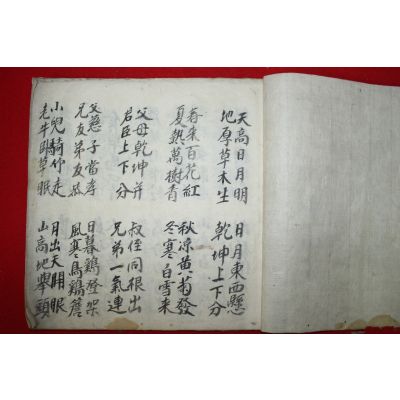 天高日月明
地厚草木生
日月東西懸
乾坤上下分
春来百花紅
夏熱萬樹青
秋凉黄菊發
冬寒白雪来
父母乾坤并
君臣上下分
叔侄同根出
兄弟一氣連
父慈子當孝
兄友弟友恭
日暮鷄登架
風寒鳥簷
小兒騎竹走
老牛卧草眠
月出天開眼
山高地擧頭